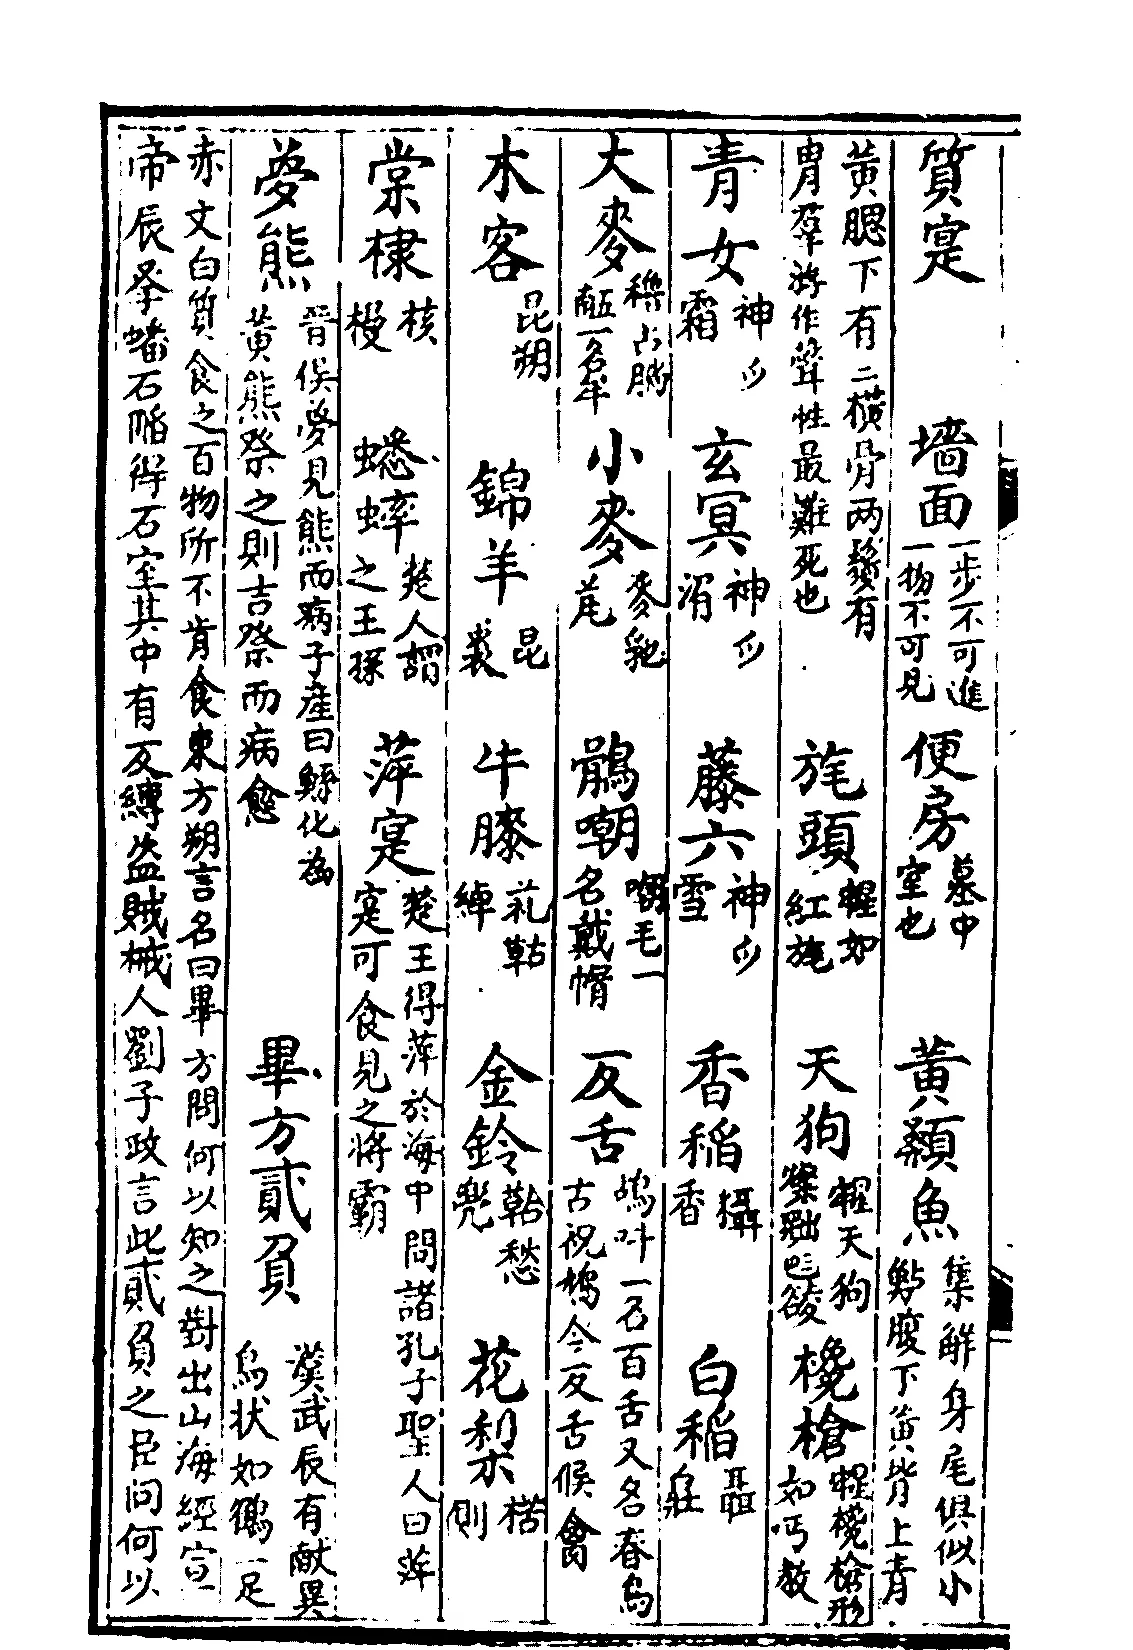 質寔 墻面 一步不可進 一物不可見 便房 墓中 室也 黃顙魚 集解身尾俱似小 鮎腹下黃背上青
黃腮下有二横骨两鬚有 胃羣游作聲性最難死也 旄頭 如 紅旄 天狗 天狗 欃槍 欃槍形 如丐教
青女 神爫 霜 玄冥 神爫 藤六 神爫 雪 香稲 攝 香 白稲 聶
大麥 一名牟 小麥 麥 鶻嘲 嘲毛一 名戴帽 反舌 鴣叫一名百舌又名春鸟 古祝鳩今反舌候禽
木客 昆朔 錦羊 昆 裘 牛膝 綽 金鈴 鞊愁 兜 花梨 楛 側
棠棣 核 梫 蟋蟀 楚人謂 之王孫 萍寔 楚王得萍於海中問諸孔子聖人曰萍 寔可食見之将霸
夢熊 晋侯夢見熊而病子産曰鯀化為 黃熊祭之則吉祭而病愈 畢方貳負 漢武辰有献異 鸟状如鶴一足
赤文白質食之百物所不肯食東方朔言名曰畢方問何以知之對出山海經宣
帝辰發蟠石陷得石室其中有反縛盗賊械人劉子政言此貳負之臣問何以